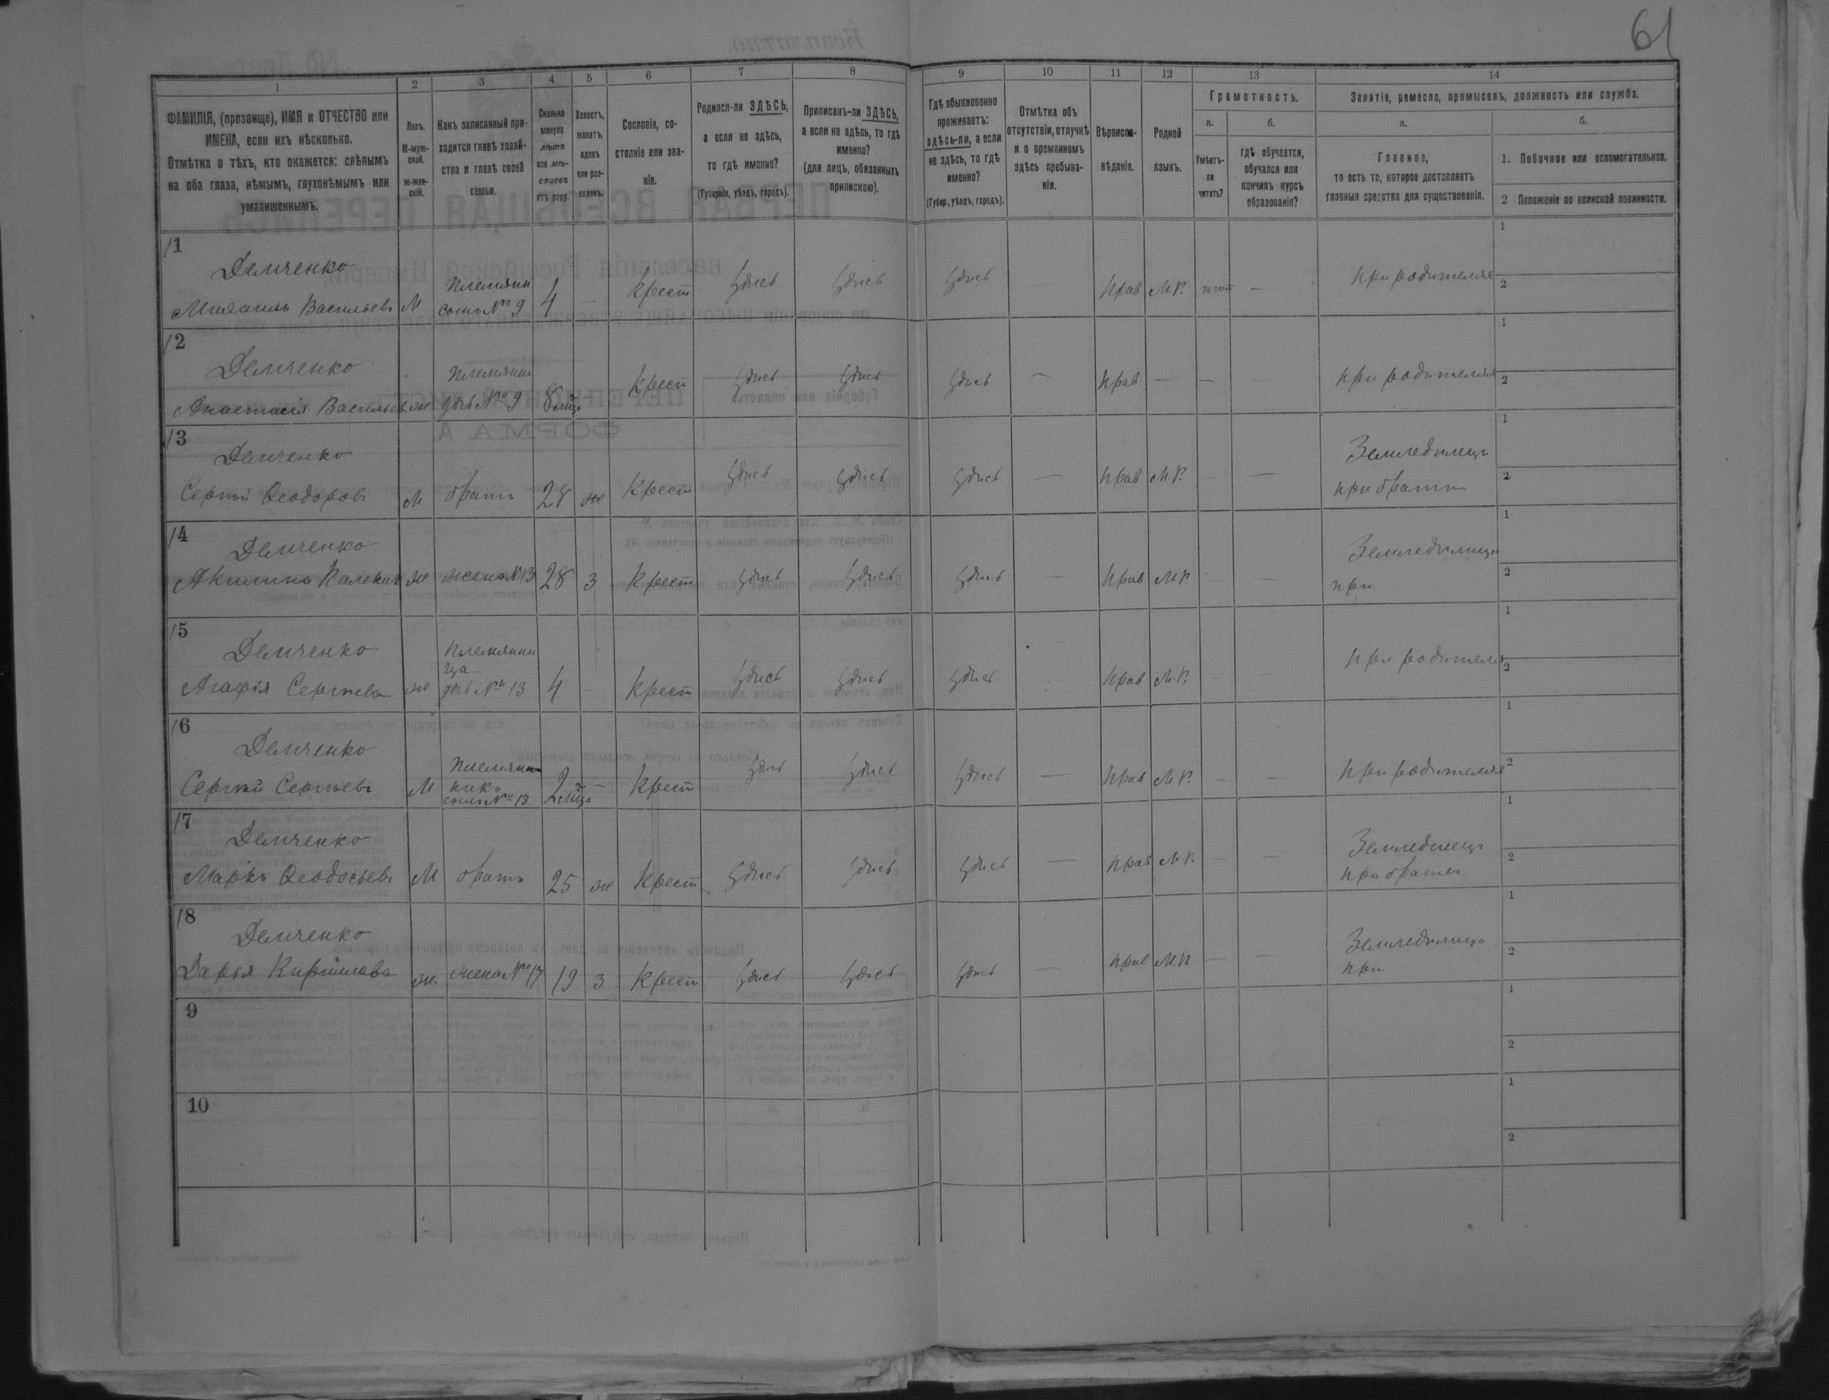 61
1 2 3 4 5 6 7 8 9 10 11 12 13 14
ФАМИЛІЯ, (прозвище), ИМЯ и ОТЧЕСТВО или
ИМЕНА, если ихъ нѣсколько.
Отмѣтка о тѣхъ, кто окажется: слѣпымъ
на оба глаза, нѣмымъ, глухонѣмымъ или
умалишеннымъ.
Полъ.
М-муж-
ской.
ж-жен-
скій.
Какъ записанный при-
ходится главѣ хозяй-
ства и главѣ своей
семьи.
Сколько
минуло
лѣтъ
или мѣ-
сяцевъ
отъ роду.
Холостъ,
женатъ,
вдовъ
или раз-
веденъ.
Сословіе, со-
стояніе или зва-
ніе.
Родился-ли ЗДѢСЬ,
а если не здѣсь,
то гдѣ именно?
(Губернія, уѣздъ, городъ).
Приписанъ-ли ЗДѢСЬ,
а если не здѣсь, то гдѣ
именно?
(для лицъ, обязанныхъ
припискою).
Гдѣ обыкновенно
проживаетъ:
здѣсь-ли, а если
не здѣсь, то гдѣ
именно?
(Губер., уѣздъ, городъ).
Отмѣтка объ
отсутствіи, отлучкѣ
и о временномъ
здѣсь пребыва-
ніи.
Вѣроиспо-
вѣданіе.
Родной
языкъ.
Грамотность.
а.
Умѣетъ-
ли
читать?
б.
гдѣ обучается,
обучался или
кончилъ курсъ
образованія?
Занятія, ремесло, промыселъ, должность или служба.
а.
Главное,
то есть то, которое доставляетъ
главныя средства для существованія.
б.
1. Побочное или вспомогательное.
2 Положеніе по воинской повинности.
11
Демченко
Михаилъ Васильевъ М Племянн сынъ № 9 4 — Крест здѣсь здѣсь здѣсь — Прав М.Р. нѣтъ — при родителях
1
2
12
Демченко
Анастасія Васильев. ж Племянн дочь № 9 8 мѣц — Крест здѣсь здѣсь здѣсь — Прав — — — при родителях
1
2
13
Демченко
Сергѣй Ѳеодоровъ М братъ 28 ж Крест здѣсь здѣсь здѣсь — Прав М.Р. — — Земледѣлецъ
при братѣ
1
2
14
Демченко
Акилина ж жена № 13 28 з Крест здѣсь здѣсь здѣсь — Прав М.Р. — — Земледѣлица
при
1
2
15
Демченко
Агафія Сергѣева ж Племянни
ца
дочь № 13 4 — Крест здѣсь здѣсь здѣсь Прав М.Р. — — при родителях
1
2
16
Демченко
Сергѣй Сергѣевъ М Племян
никъ
сынъ № 13 2 мѣца — Крест здѣсь здѣсь здѣсь — Прав М.Р. — — при родителях
1
2
17
Демченко
Маркъ Ѳеодосьевъ М братъ 25 ж Крест здѣсь здѣсь здѣсь — Прав М.Р. — — Земледѣлецъ
при братѣ
1
2
18
Демченко
Дарья Кирилова ж. жена № 17 19 з Крест здѣсь здѣсь здѣсь — Прав М.Р. — — Земледѣлица
при
1
2
9
1
2
10
1
2